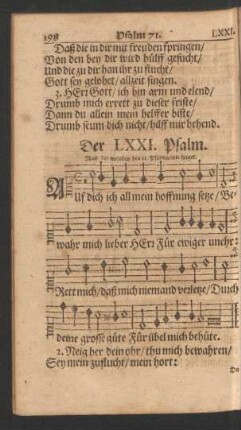 198 Psalm 71. LXXI.
Daß die in dir mit freuden springen/
Von den bey dir wird hülff gesucht/
Und die zu dir han ihr zuflucht/
Gott sey gelobet/ allzeit singen.
3. HErr Gott/ ich bin arm und elend/
Drumb mich errett zu dieser friste/
Dann du allein mein helffer biste/
Drumb seum dich nicht/ hilff mir behend.
Der LXXI. Psalm.
Auf dich ich all mein hoffnung setze/ Be-
wahr mich lieber HErr Für ewiger unehr:
Rett mich/ daß mich niemand verletze/ Durch
deine grosse güte Für übel mich behüte.
2. Neig her dein ohr/ thu mich bewahren/
Sey mein zuflucht/ mein hort: